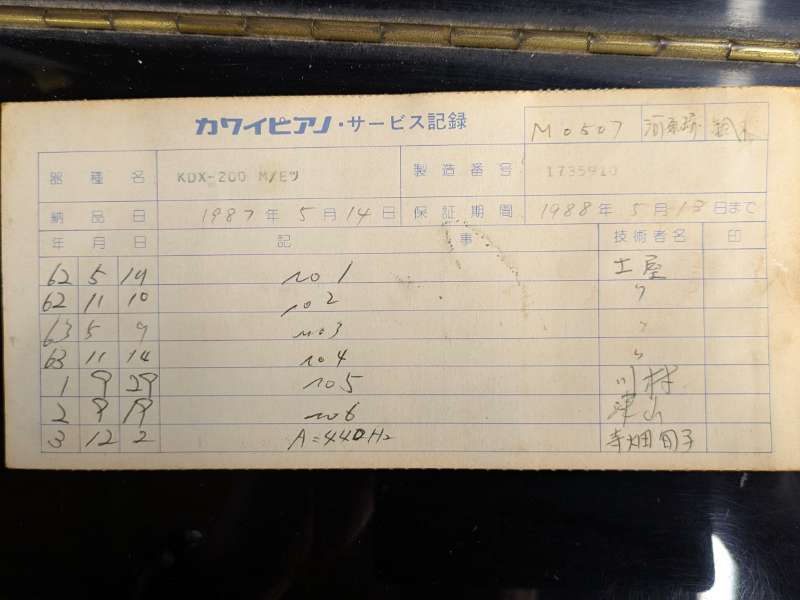 カワイピアノ・サービス記録 M0507
器種名 KDX-200 M/Eツ 製造番号 1735910
納品日 1987年5月14日 保証期間 1988年5月13日まで
年 月 日 記事 技術者名 印
62 5 14 no 1 土屋
62 11 10 no 2 〃
63 5 9 no 3 〃
63 11 14 no 4 〃
1 9 29 no 5 川村
2 9 19 no 6
3 12 2 A=440Hz 寺畑